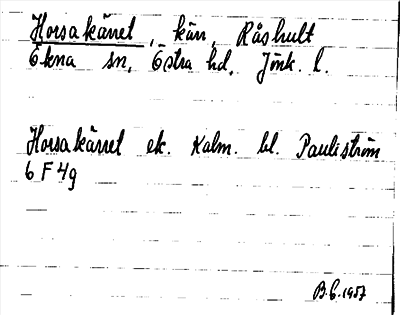 Horsakärret, kärr, Råshult
Ökna sn, Östra hd, Jönk. l.
Horsakärret ek. Kalm. bl. Pauliström
6 F 4g
B.E. 1957